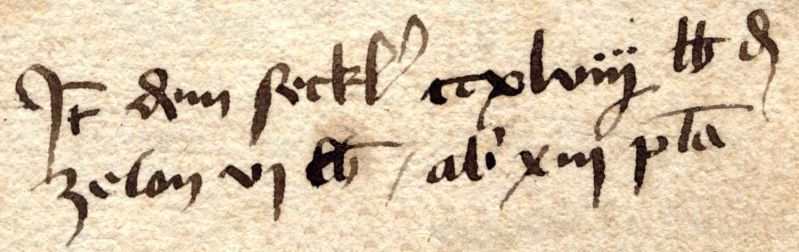 It dem seckl ccxlviij lb d
zelon vj lb / ab xiij pla